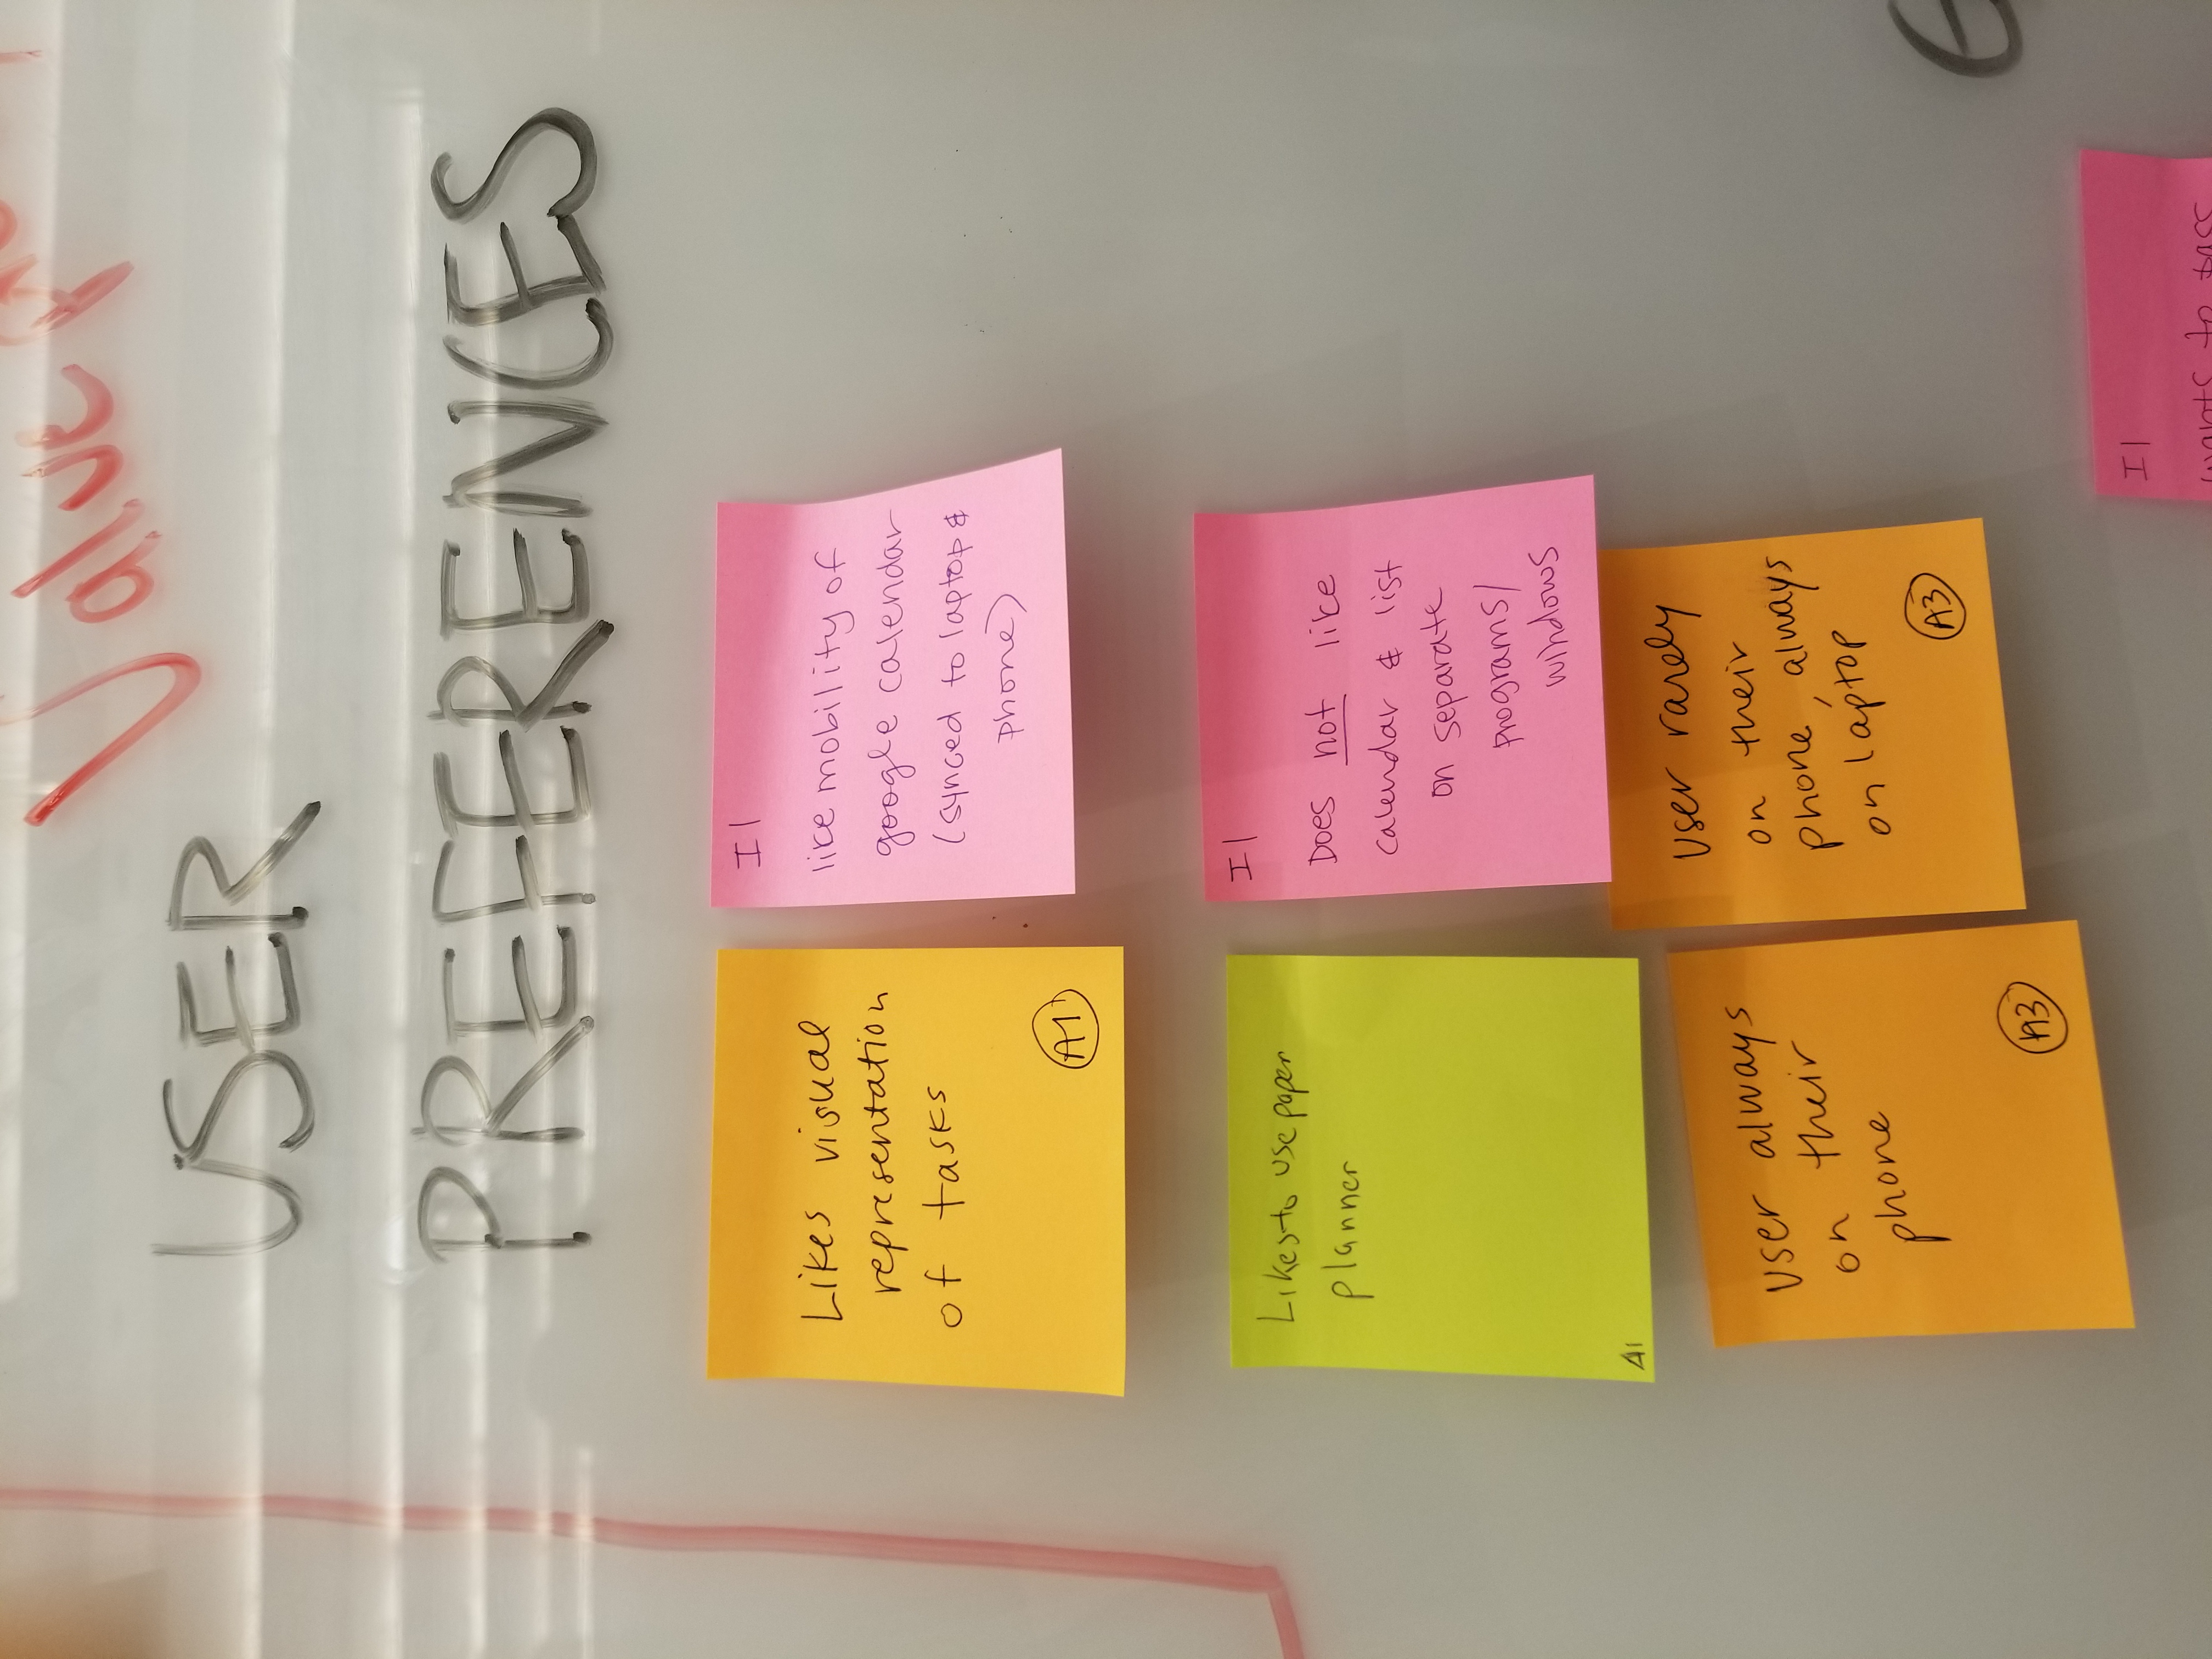 Value
USER
PREFERENCES
Likes visual
representation
of tasks
A1
I1
like mobility of
google calendar
(synced to laptop &
phone)
Likes to use paper
planner
A1
I1
Does not like
calendar & list
on separate
programs/
windows
User always
on their
phone
A3
User rarely
on their
phone, always
on laptop
A3
I1
wants to pass